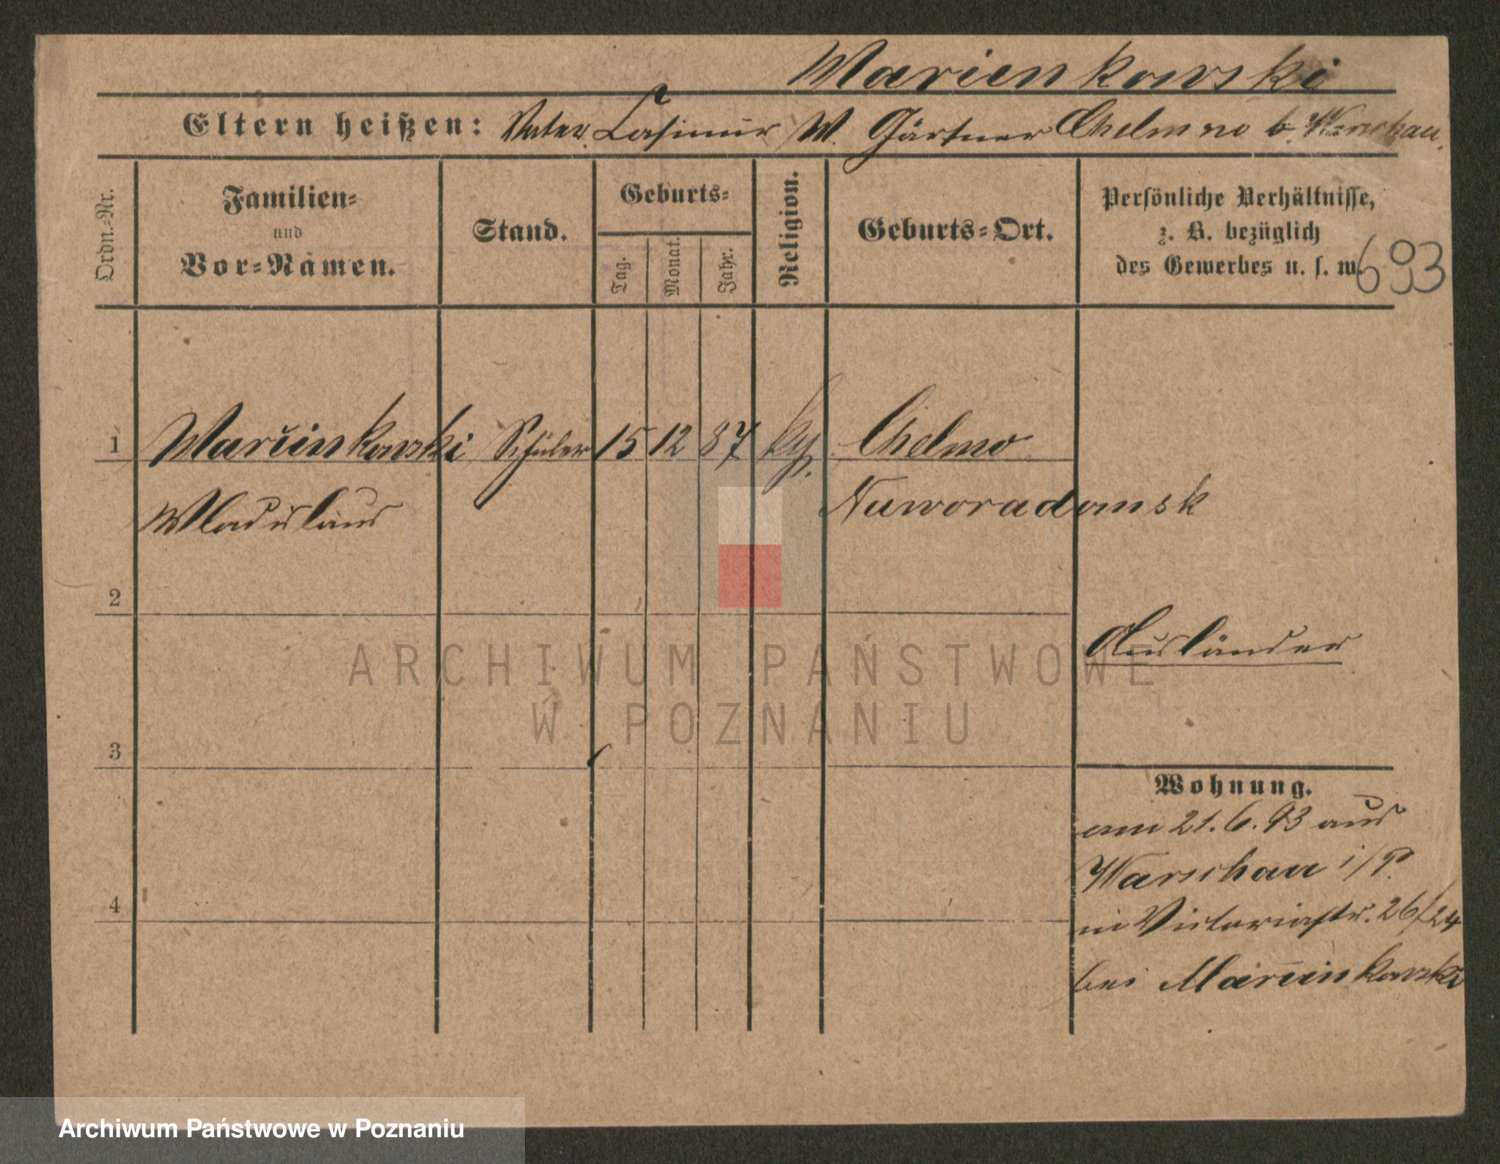 Marienkowski
Eltern heißen: Vater Casimir W. Gärtner Chelmno b. Warschau.
Ordn.-Nr.
Familien- und Vor-Namen.
Stand.
Geburts-
Tag.
Monat.
Jahr.
Religion.
Geburts-Ort.
Persönliche Verhältnisse,
z. B. bezüglich
des Gewerbes u. s. w.
693
1 Marienkowski Schüler 15 12 87 Chelmo
Wladislaus Nuworadomsk
2
Ausländer
ARCHIWUM PAŃSTWOWE
W POZNANIU
3
Wohnung.
am 21.6.93 aus
Warschau i/P.
in Victoriastr. 26/24
4
bei Marienkowski
Archiwum Państwowe w Poznaniu